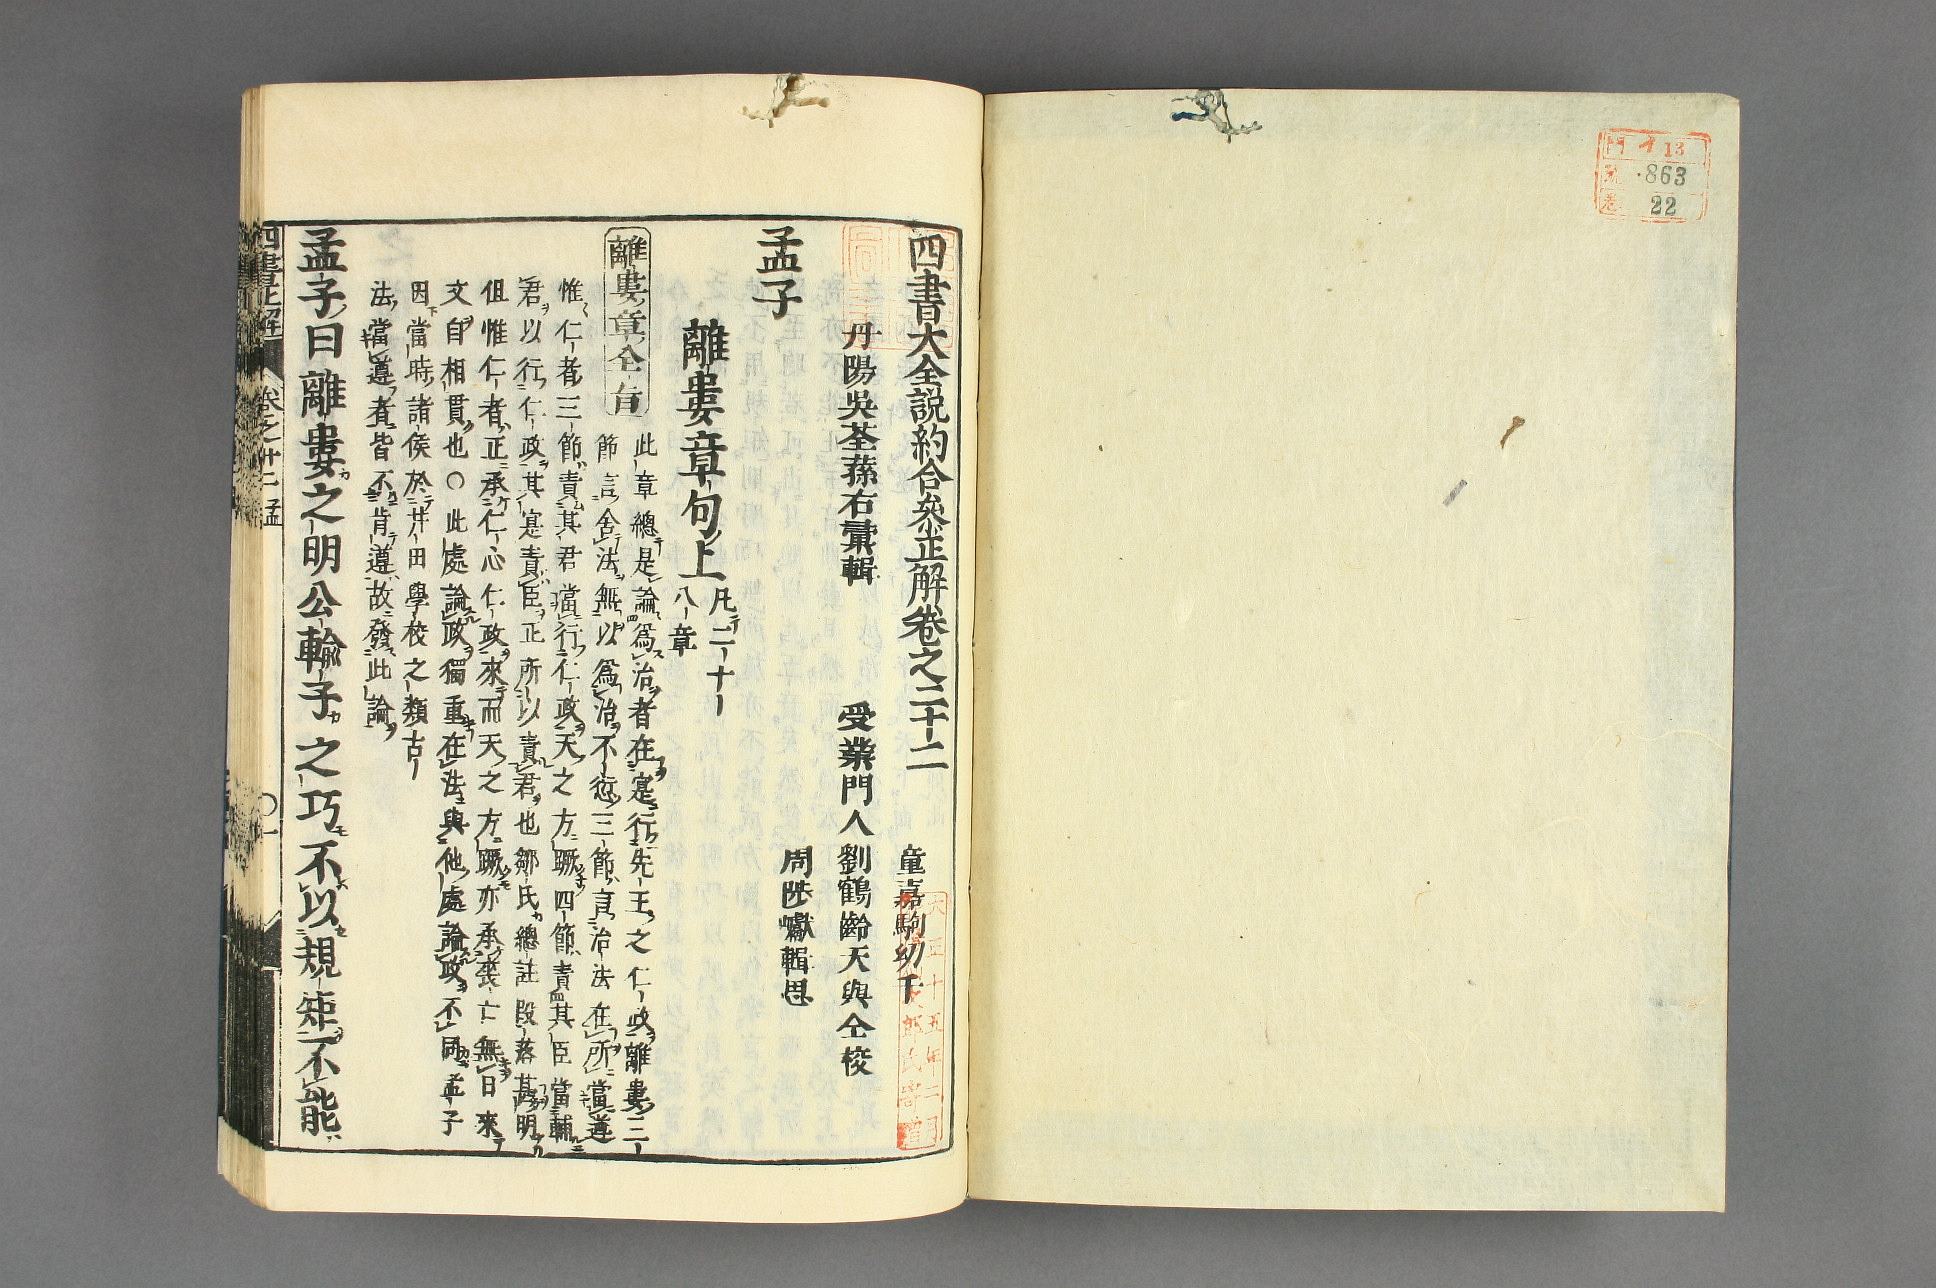 13
863
22
四書大全説約合參正解卷之二十二
丹陽吳荃蓀右彙輯
受業門人
童嘉駒幼千
劉鶴齡天與仝校
周陞巘輯思
孟子
離婁章句上
凡二十
八章
離婁章全旨
此章總是論爲治者在寔行先王之仁政離婁三
節言舍法無以爲治不愆三節言治法在所當遵
惟仁者三節責其君當行仁政天之方蹶四節責其臣當輔
君以行仁政其寔責臣正所以責君也鄒氏總註段落甚明
但惟仁者正承仁心仁政來而天之方蹶亦承喪亡無日來
文自相貫也○此處論政獨重在法與他處論政不同孟子
因當時諸侯於井田學校之類古
法當遵者皆不肯遵故發此論
孟子曰離婁之明公輸子之巧不以規矩不能
四書正解
卷之廿二 孟
〇一